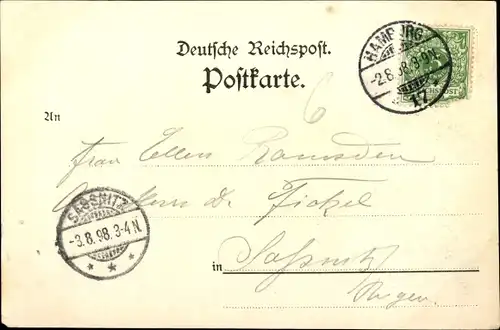 Deutsche Reichspost.
Postkarte.
HAMBURG
-2.8.98.3-9N.
17.
6
An
Frau Ellen Ramsden
Dr. Fickel
SASSNITZ
-3.8.98.3-4N.
in Saßnitz
Rügen.